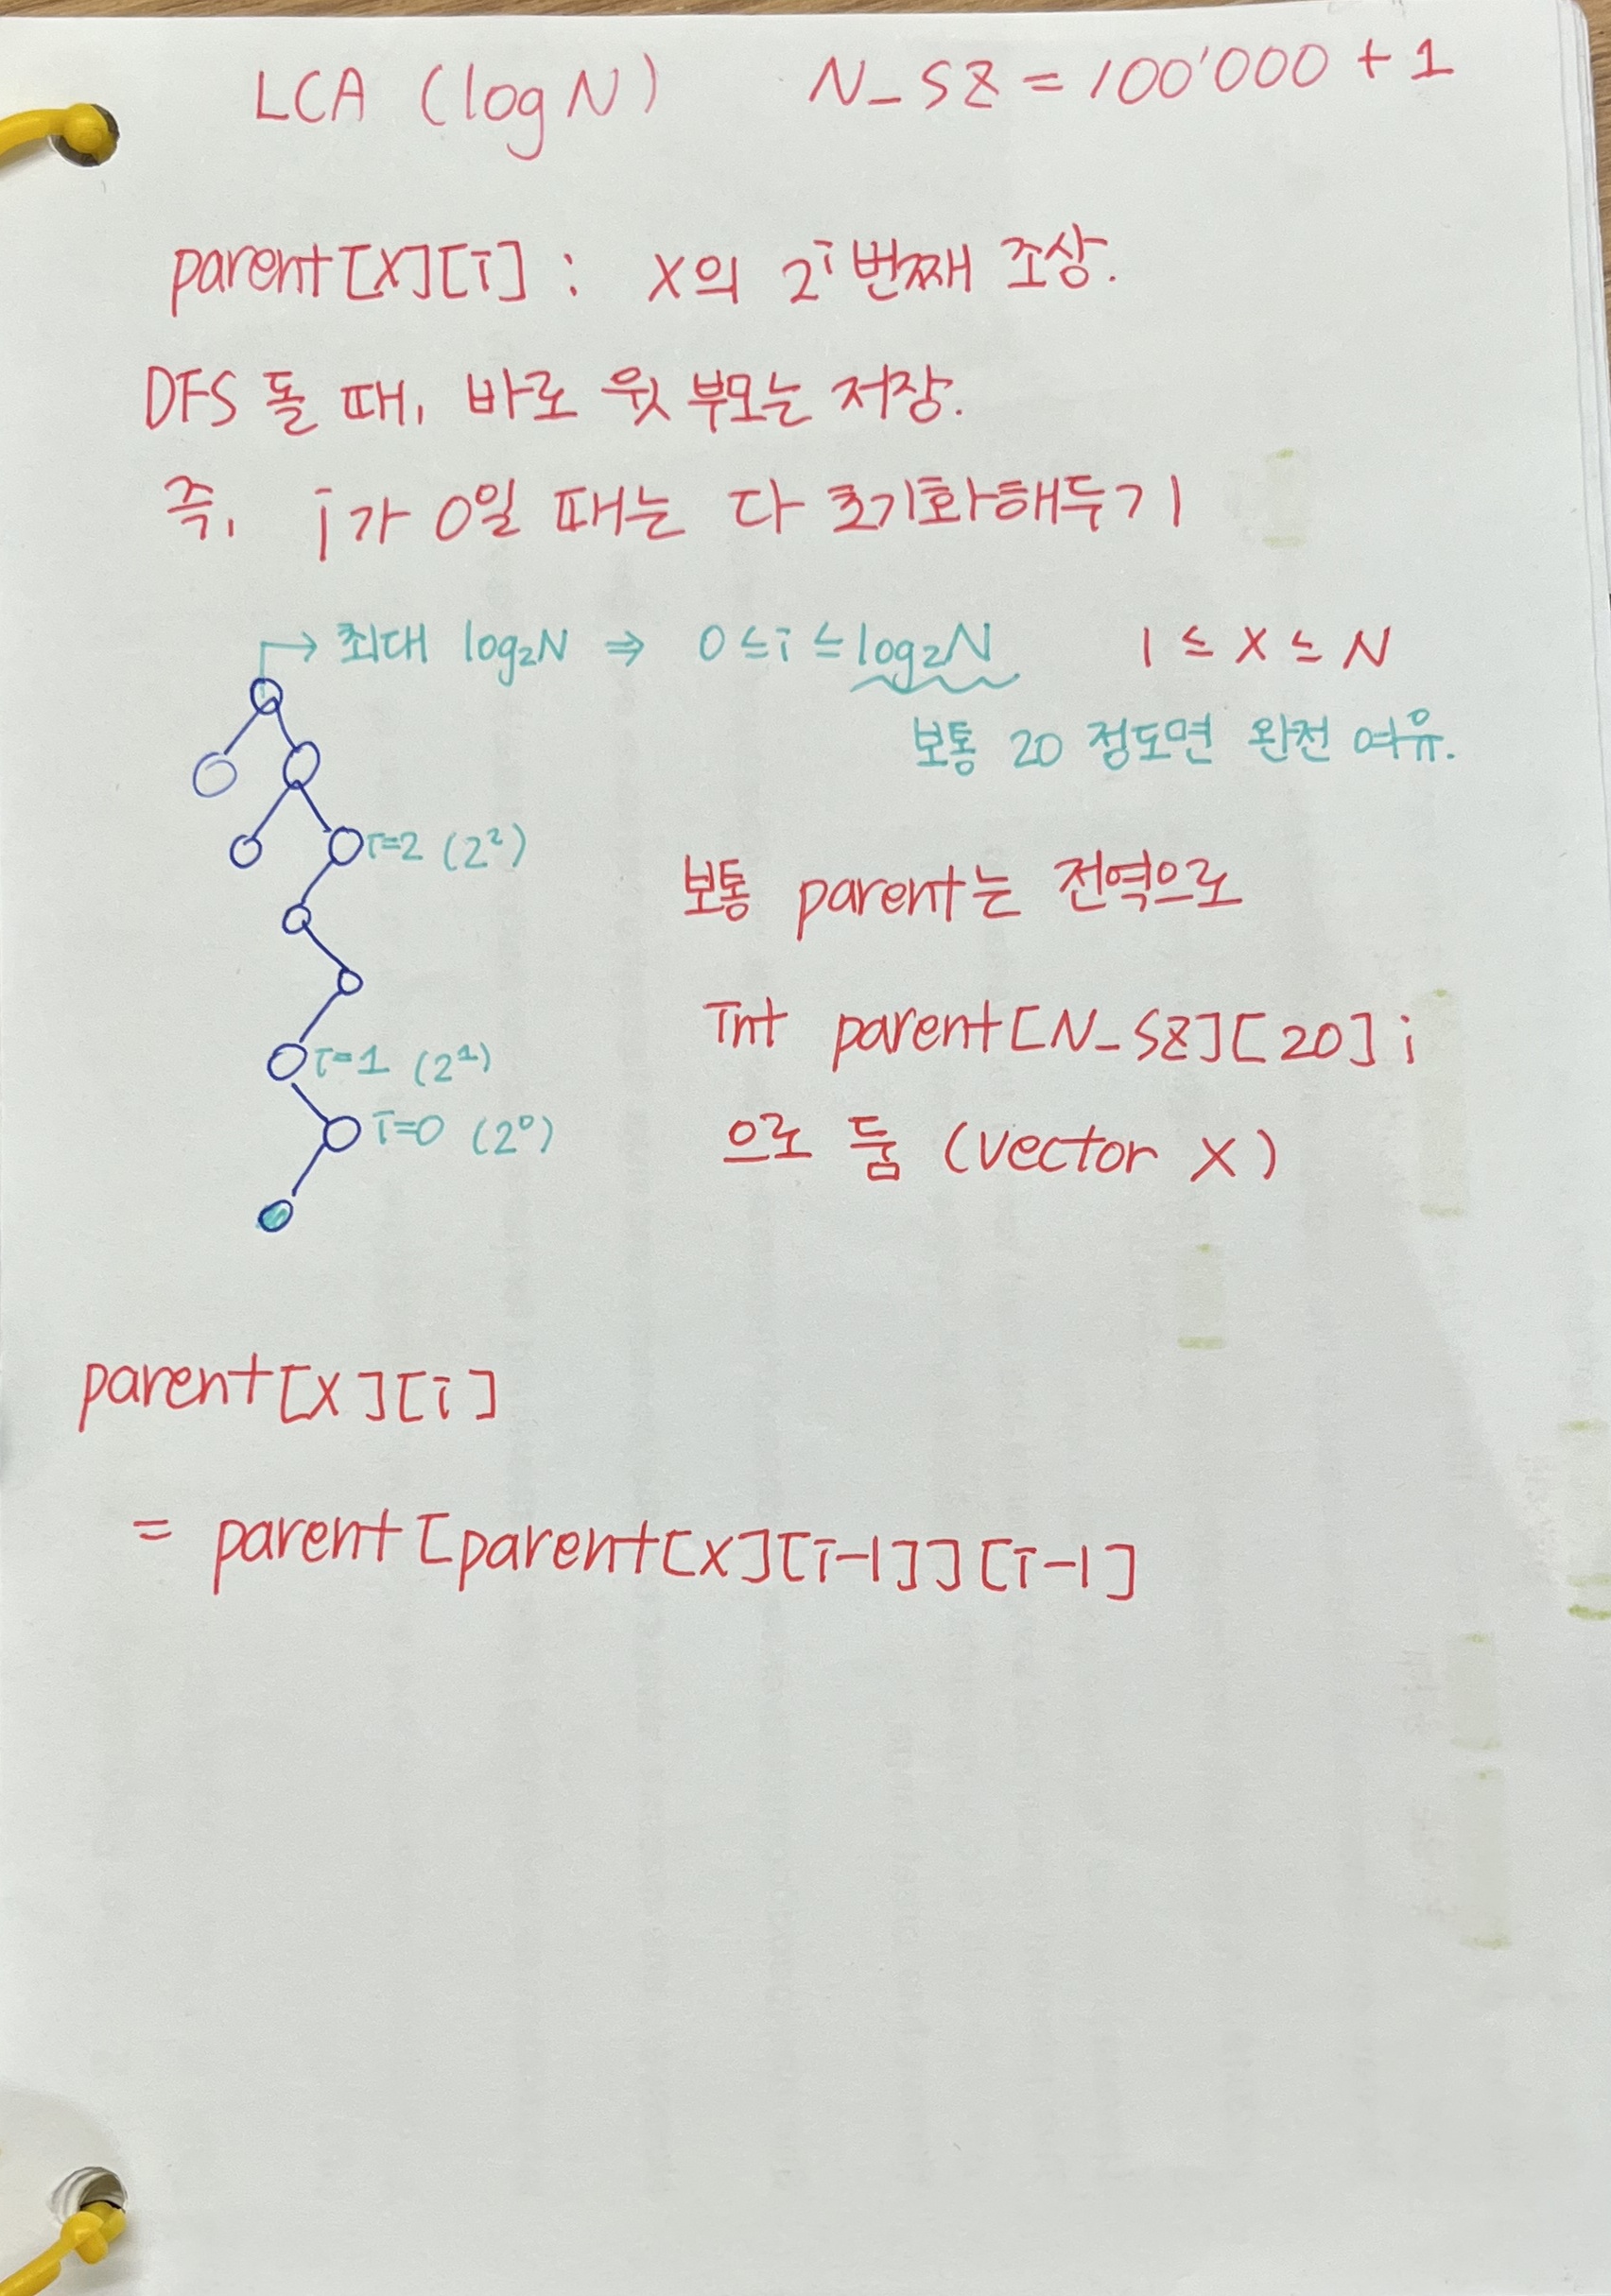 LCA (log N) N_SZ = 100'000 + 1
parent[x][i] : x의 2ⁱ 번째 조상.
DFS 돌 때, 바로 윗 부모는 저장.
즉, i가 0일 때는 다 초기화해두기
→ 최대 log₂N ⇒ 0 ≤ i ≤ log₂N 1 ≤ x ≤ N
보통 20 정도면 완전 여유.
i=2 (2²)
보통 parent는 전역으로
int parent[N_SZ][20];
i=1 (2¹)
i=0 (2⁰)
으로 둠 (vector X)
parent[x][i]
= parent[parent[x][i-1]][i-1]